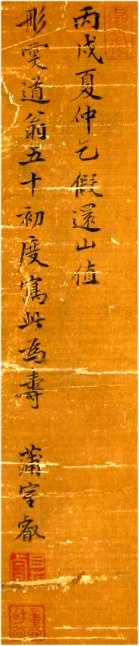 丙戌夏仲乞假還山值
形雯道翁五十初度寫此為壽 蕭室叡